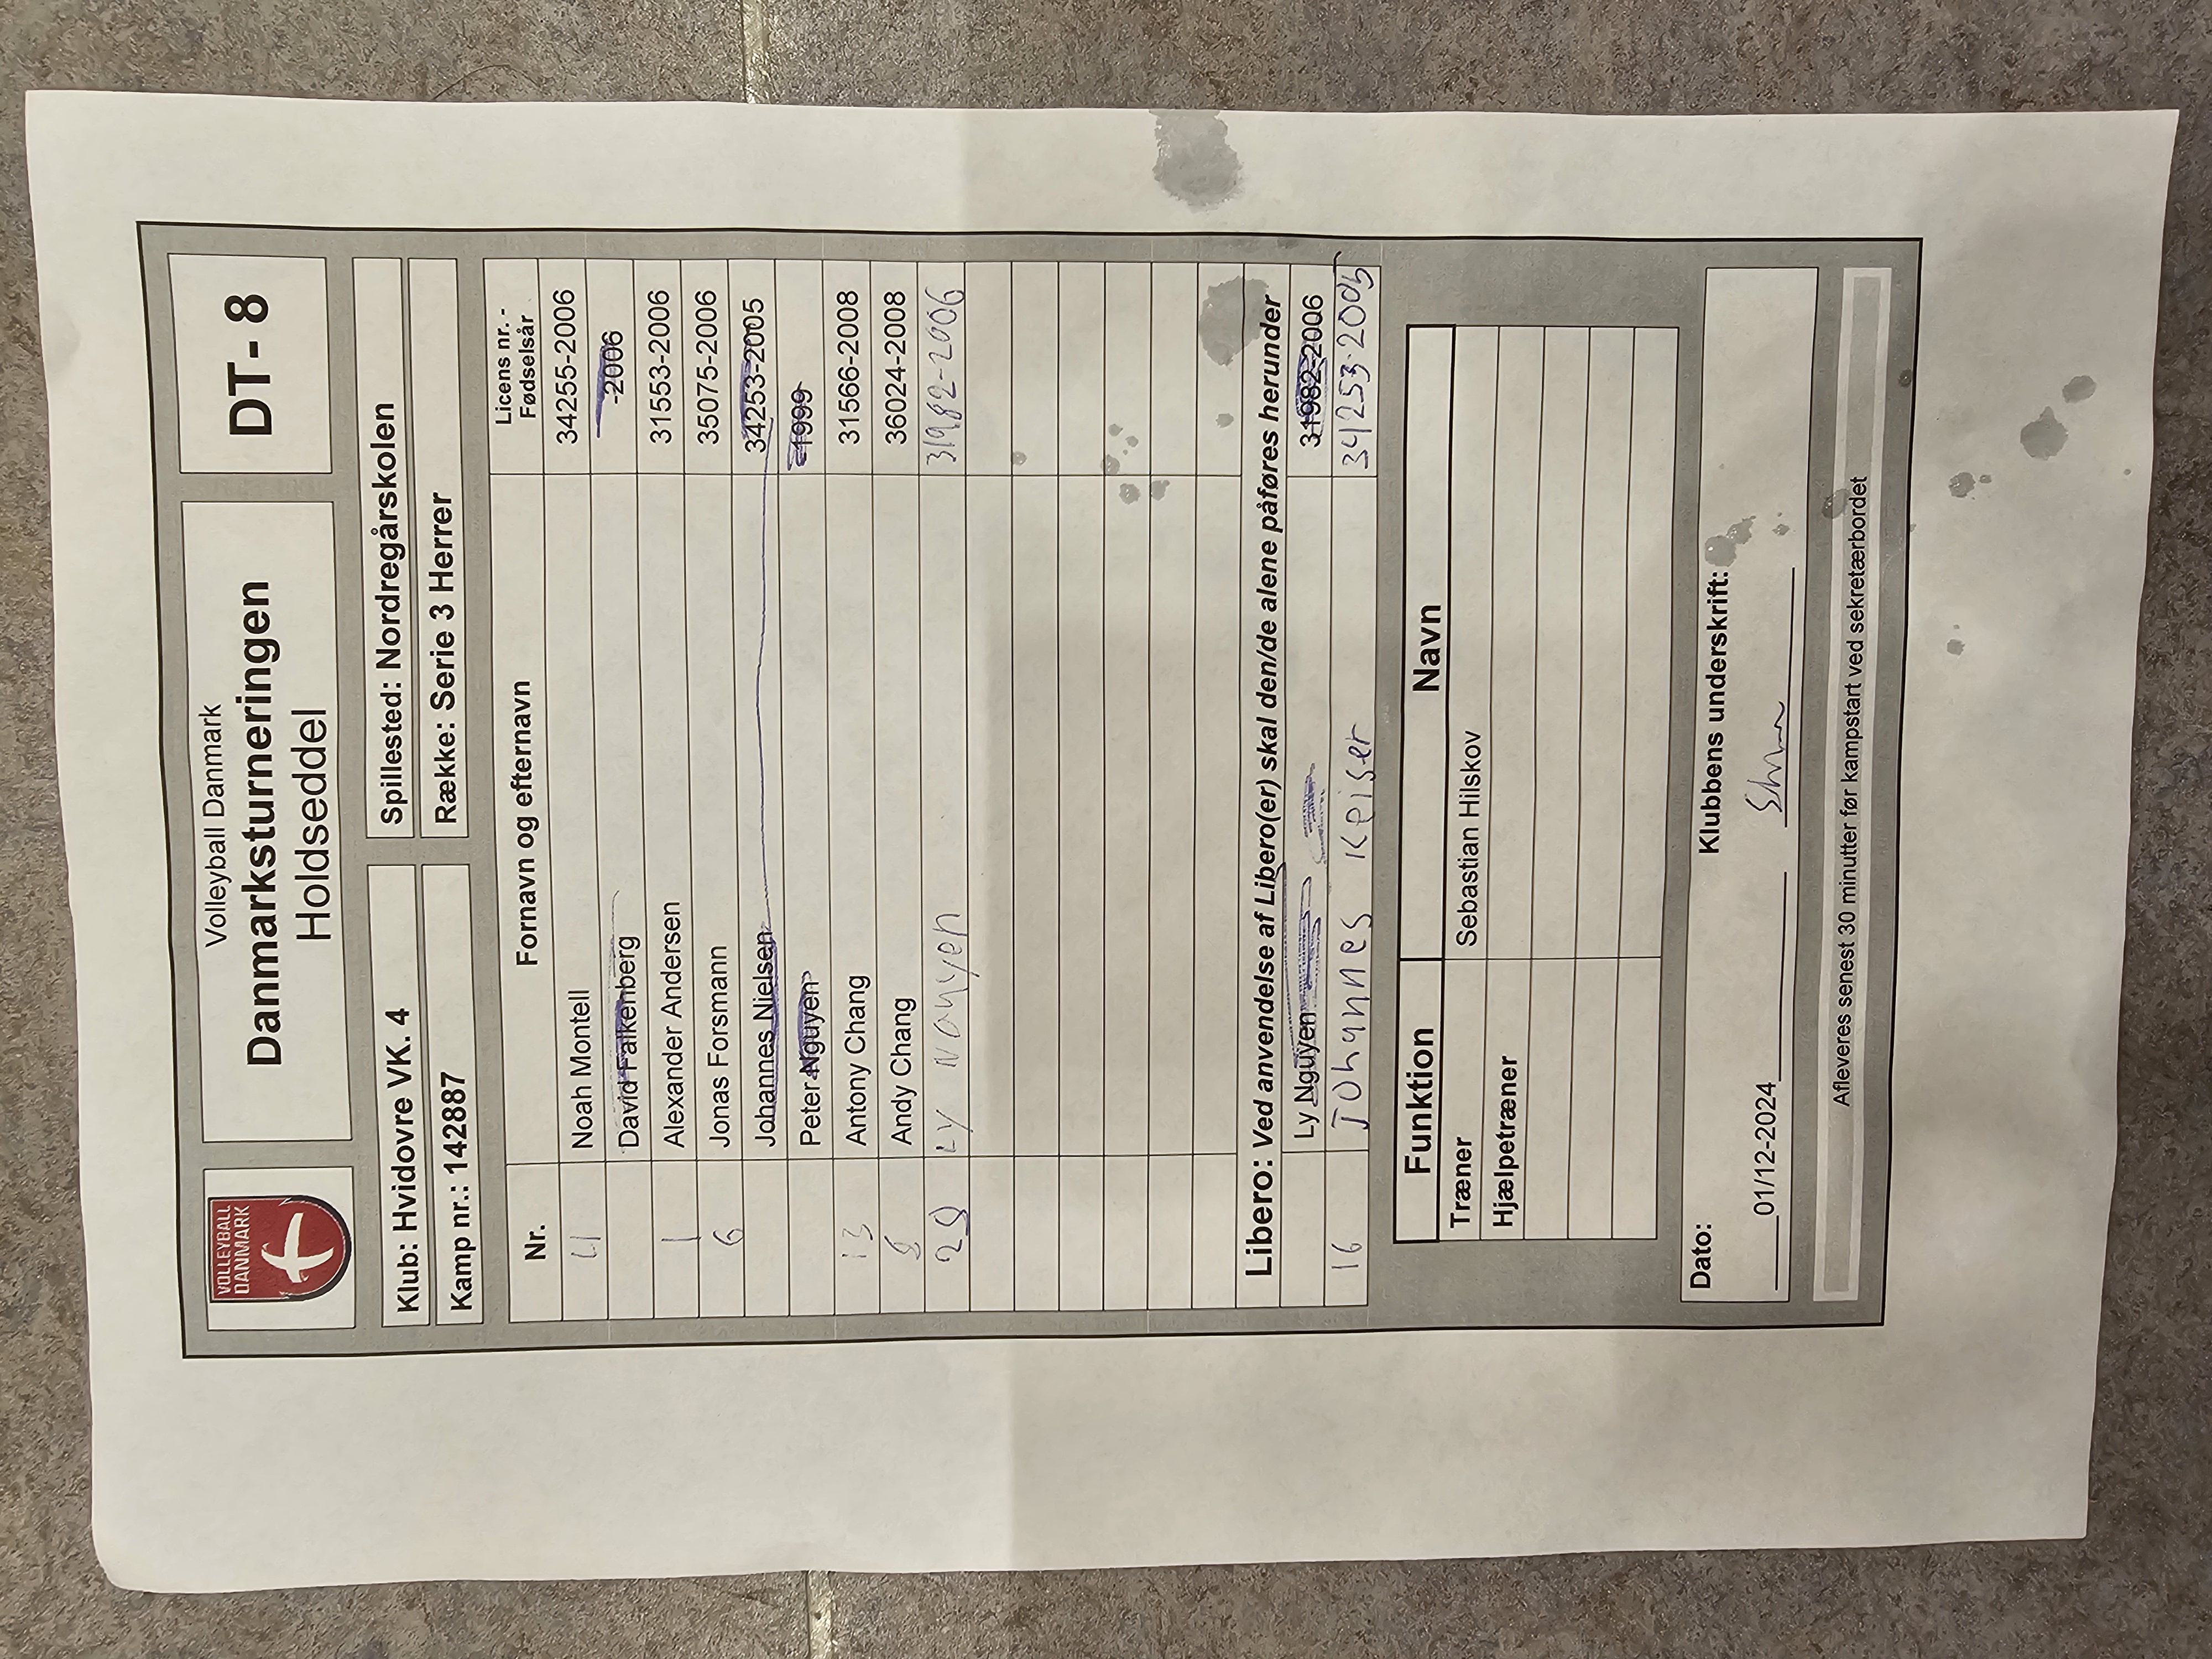 VOLLEYBALL
DANMARK
Volleyball Danmark
Danmarksturneringen
Holdseddel
DT - 8
Klub: Hvidovre VK. 4 Spillested: Nordregårskolen
Kamp nr.: 142887 Række: Serie 3 Herrer
Nr. Fornavn og efternavn Licens nr. - Fødselsår
Noah Montell 34255-2006
David Falkenberg -2006
1 Alexander Andersen 31553-2006
6 Jonas Forsmann 35075-2006
Johannes Nielsen 34253-2005
Peter Nguyen -1999
13 Antony Chang 31566-2008
8 Andy Chang 36024-2008
29 Ly Nguyen 31982-2006
Libero: Ved anvendelse af Libero(er) skal den/de alene påføres herunder
Ly Nguyen 31982-2006
16 Johannes Keiser 34253-2005
Funktion Navn
Træner Sebastian Hilskov
Hjælpetræner
Dato: Klubbens underskrift:
01/12-2024
Afleveres senest 30 minutter før kampstart ved sekretærbordet